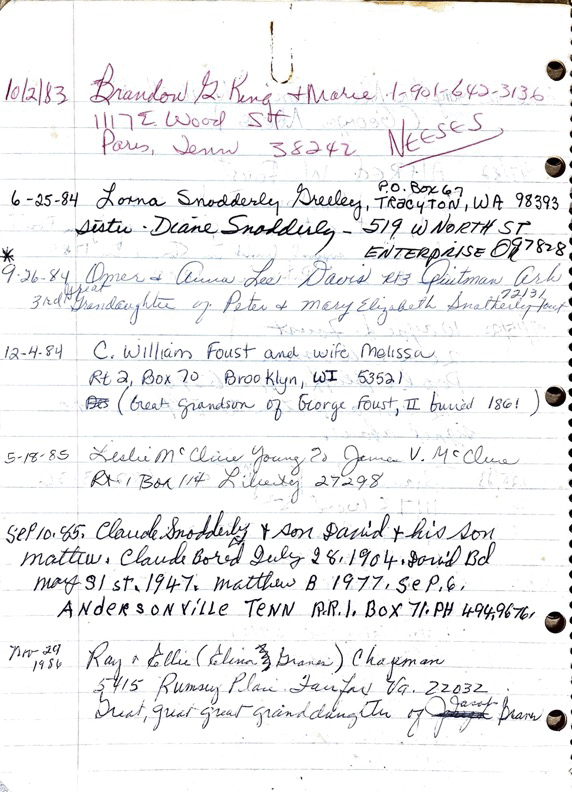 10/2/83 Brandon G. King + Marie 1-901-642-3136
1117 E Wood St
Paris, Tenn 38242 NEESES
6-25-84 Lorna Snodderly Greeley, P.O. Box 67
TRACYTON, WA 98393
Sister - Diane Snodderly - 519 W NORTH ST
ENTERPRISE OR 97828
*
9-26-84 Omer & Anna Lee Davis Rt 3 Quitman Ark
72131
3rd great Grandaughter of Peter & Mary Elizabeth Snotherly Foust
12-4-84 C. William Foust and wife Melissa
Rt 2, Box 70 Brooklyn, WI 53521
(Great grandson of George Foust, II buried 1861)
5-18-85 Leslie McClure Young & James V. McClure
Rt 1 Box 114 Liberty 27298
SeP 10.85. Claude Snodderly & son David & his son
matthew. Claude Bored July 28, 1904. David Bd
may 31 st. 1947. matthew B 1977. SeP. 6.
ANDERSONVILLE TENN R.R.1. BOX 71. PH 494,9676.
Nov 29
1986 Ray & Ellie (Elinor Braner) Chapman
5415 Rumsey Place Fairfax Va. 22032
Great, great great granddaughter of Jacob Braner